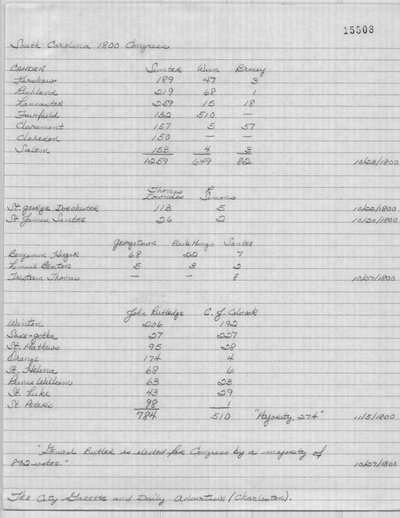 15508
South Carolina 1800 Congress
CAMDEN Sumter Winn Bracey
Kershaw 189 47 3
Richland 219 68 1
Lancaster 259 15 18
Fairfield 132 510 —
Claremont 157 5 57
Claredon 150 — —
Salem 153 4 3
1259 649 82 10/23/1800
Thomas Lowndes R. Simons
St. George, Dorchester 113 5 10/20/1800
St. James Santee 26 2 10/20/1800
Georgetown Black Mingo Santee
Benjamin Huger 68 22 7
Lemuel Benton 5 3 2
Tristram Thomas — — 8 10/27/1800
John Rutledge C. J. Colcock
Winton 206 192
Saxe-gotha 27 227
St. Mathews 95 28
Orange 174 4
St. Helena 68 6
Prince William 63 23
St. Luke 43 29
St. Peters 98 1
784 510 "Majority, 274" 11/5/1800
"General Butler is elected for Congress by a majority of
892 votes." 10/27/1800
The City Gazette and Daily Advertiser (Charleston).